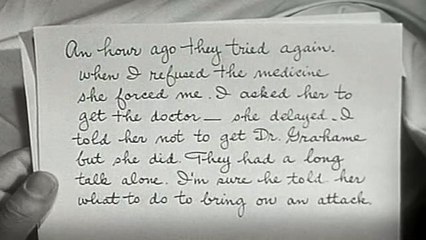 An hour ago they tried again.
When I refused the medicine
she forced me. I asked her to
get the doctor— she delayed. I
told her not to get Dr. Grahame
but she did. They had a long
talk alone. I'm sure he told her
what to do to bring on an attack.